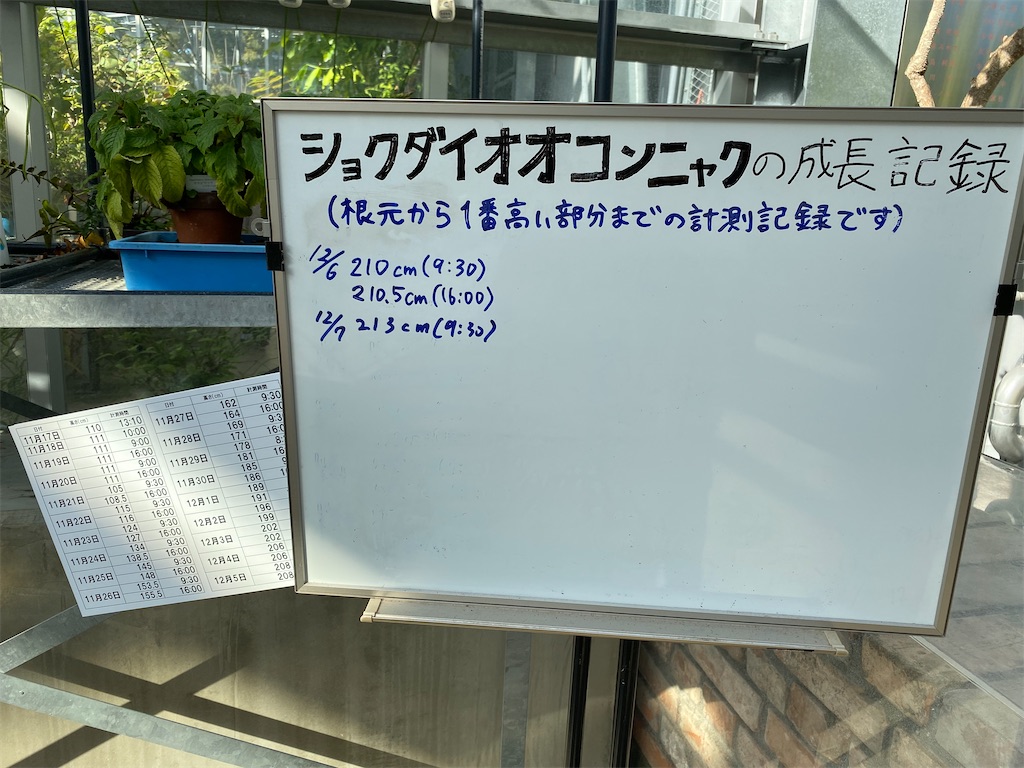 ショクダイオオコンニャクの成長記録
(根元から1番高い部分までの計測記録です)
12/6 210cm(9:30)
210.5cm(16:00)
12/7 213cm(9:30)
日付 高さ(cm) 計測時間
11月17日 110 13:10
11月18日 111 10:00
11月19日 111 9:00
111 16:00
11月20日 111 9:00
111 16:00
11月21日 105 9:30
108.5 16:00
11月22日 115 9:30
116 16:00
11月23日 124 9:30
127 16:00
11月24日 134 9:30
138.5 16:00
11月25日 145 9:30
148 16:00
11月26日 153.5 9:30
155.5 16:00
日付 高さ(cm) 計測時間
11月27日 162 9:30
164 16:00
11月28日 169
171
11月29日 178
181
11月30日 185
186
12月1日 189
191
12月2日 196
199
12月3日 202
202
12月4日 206
206
12月5日 208